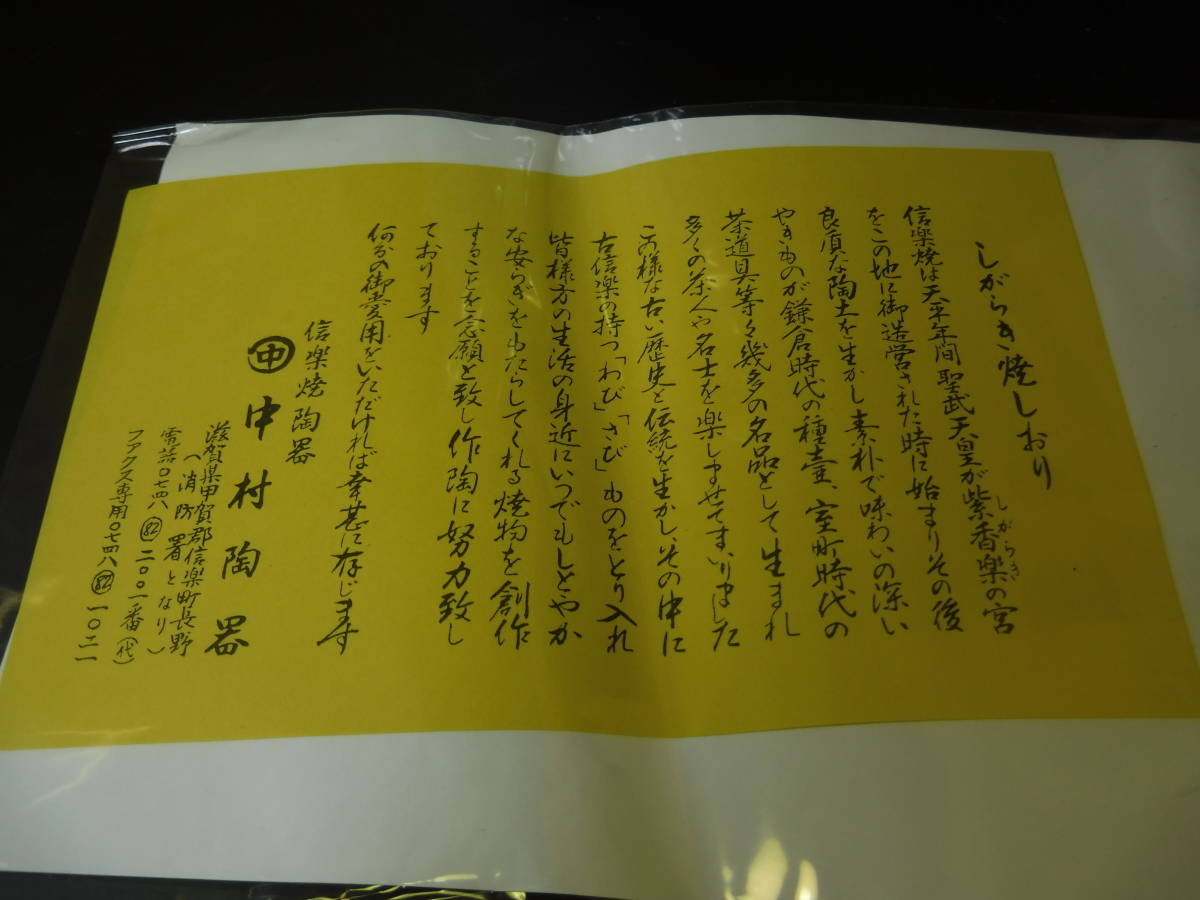 しがらき焼しおり
信楽焼は天平年間聖武天皇が紫香楽の宮
しがらき
をこの地に御造営された時に始まりその後
良質な陶土を生かし素朴で味わいの深い
やきものが鎌倉時代の種壷、室町時代の
茶道具等々幾多の名品として生まれ
多くの茶人や名士を楽しませてまいりました
この様な古い歴史と伝統を生かし、その中に
古信楽の持つ「わび」「さび」ものをとり入れ
皆様方の生活の身近にいつでもしとやか
な安らぎをもたらしてくれる焼物を創作
することを念願と致し作陶に努力致し
ております
何分の御愛用をいただければ幸甚に存じます
信楽焼陶器
㊥中村陶器
滋賀県甲賀郡信楽町長野
（消防署となり）
電話〇七四八(82)二〇〇一番（代）
ファクス専用〇七四八(82)一〇二一